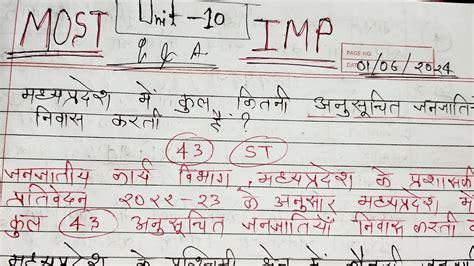 MOST Unit-10 IMP
Q & A
PAGE NO.
DATE 01/06/2024
मध्यप्रदेश में कुल कितनी अनुसूचित जनजाति
निवास करती हैं?
43 ST
जनजातीय कार्य विभाग, मध्यप्रदेश के प्रशासकी
प्रतिवेदन २०२२-२३ के अनुसार मध्यप्रदेश में
कुल 43 अनुसूचित जनजातियाँ निवास करती
मध्यप्रदेश के पश्चिमी क्षेत्र में कौनसी जनजाति